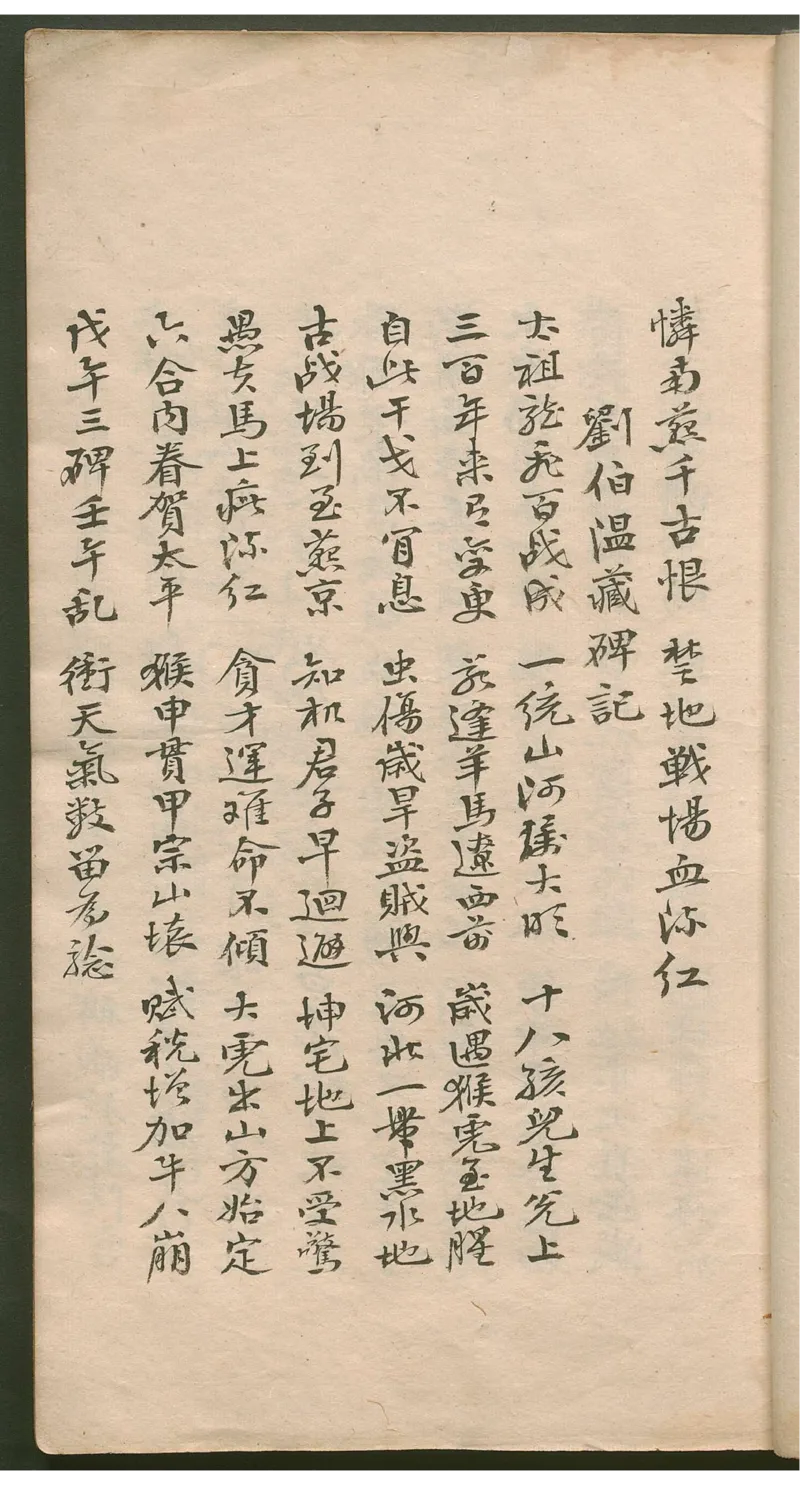 憐南燕千古恨 楚地戰場血流紅
劉伯温藏碑記
太祖龍飛百战成 一統山河屬大明 十八孩兒生兌上
三百年来有变更 若逢羊馬遼西前 歲遇猴虎至地腥
自此干戈不肎息 虫傷歲旱盜賊興 河北一帶黑水地
古战場到至燕京 知机君子早迴避 坤宅地上不受驚
愚夫馬上血流红 貪才運难命不傾 大虎出山方始定
六合内眷賀太平 猴申貫甲宗山壞 赋稅增加牛八崩
戊午三碑壬午乱 衝天氣数留为